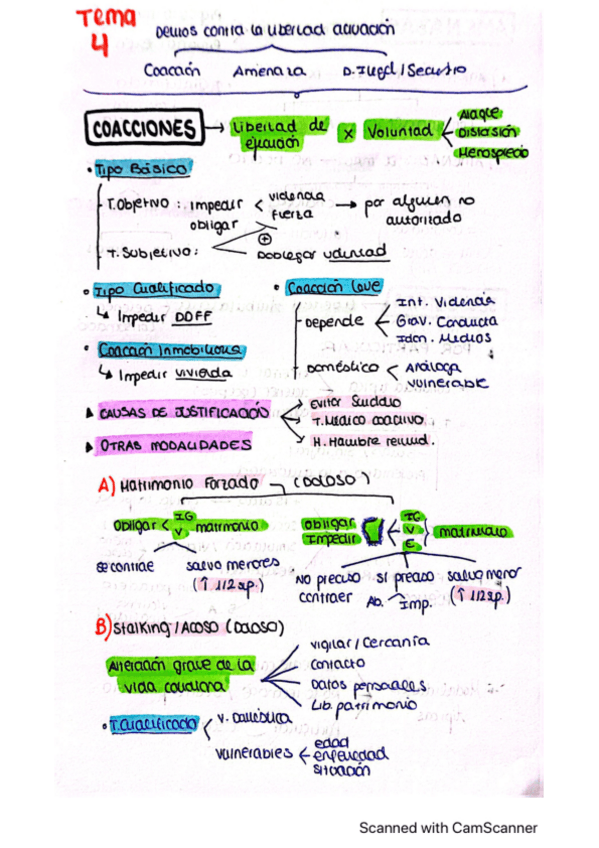 Tema 4
Delitos contra la libertad actuación
Coacción Amenaza D.Ilegal/Secuestro
COACCIONES → Libertad de ejecución x Voluntad
Ataque
Distorsión
Menosprecio
• Tipo Básico
T.Objetivo: impedir obligar < violencia fuerza → por alguien no autorizado
T. Subjetivo: Doblegar voluntad
• Tipo Cualificado
↳ Impedir DDFF
• Coacción Inmobiliaria
↳ Impedir vivienda
• Coacción leve
Depende
Int. Violencia
Grav. Conducta
Idon. Medios
T. Doméstico < Análoga
vulnerable
▲ CAUSAS DE JUSTIFICACIÓN
Evitar Suicidio
T. Médico coactivo
H. Hambre reivind.
▲ OTRAS MODALIDADES
A) Matrimonio Forzado (DOLOSO)
Obligar < IG V matrimonio
se contrae
salvo menores
(↑ 1/2 sp.)
obligar
Impedir
< IG V E } matrimonio
NO preciso contraer
SÍ preciso
Ab. Imp.
salvo menor
(↑ 1/2 sp.)
B) Stalking/Acoso (Doloso)
Alteración grave de la vida cotidiana
vigilar/Cercanía
contacto
Datos personales
Lib. patrimonio
• T.Cualificado < V. Doméstica
vulnerables
edad
enfermedad
situación
Scanned with CamScanner